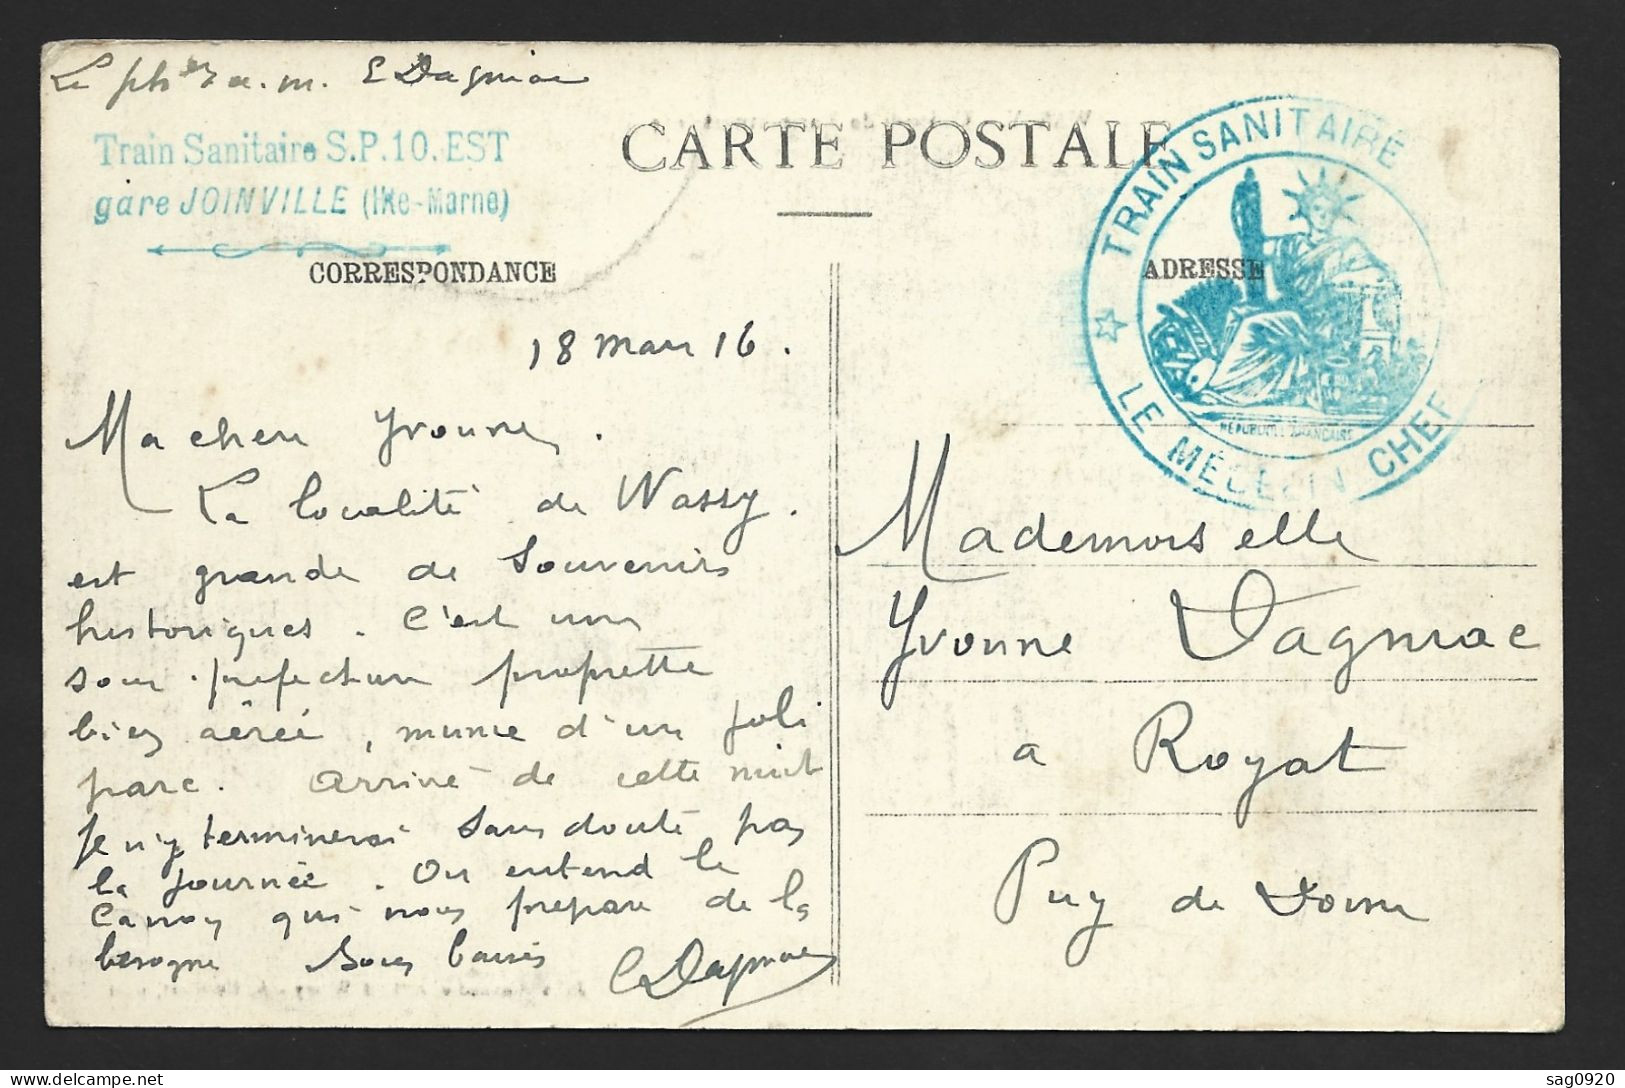 Le phen a.m. E Dagniac
Train Sanitaire S.P.10.EST
gare JOINVILLE (Hte-Marne)
CARTE POSTALE
TRAIN SANITAIRE
LE MÉDECIN CHEF
REPUBLIQUE FRANCAISE
CORRESPONDANCE
ADRESSE
18 mars 16.
Ma chère Yvonne.
La localité de Wassy.
est grande de souvenirs
historiques. C'est une
sous-préfecture proprette
bien aérée, munie d'un joli
parc. Arrivé de cette nuit
Je n'y terminerai sans doute pas
la journée. On entend le
canon qui nous prépare de la
besogne Bons baisers EDagniac
Mademoiselle
Yvonne Dagniac
a Royat
Puy de Dome
sag0920